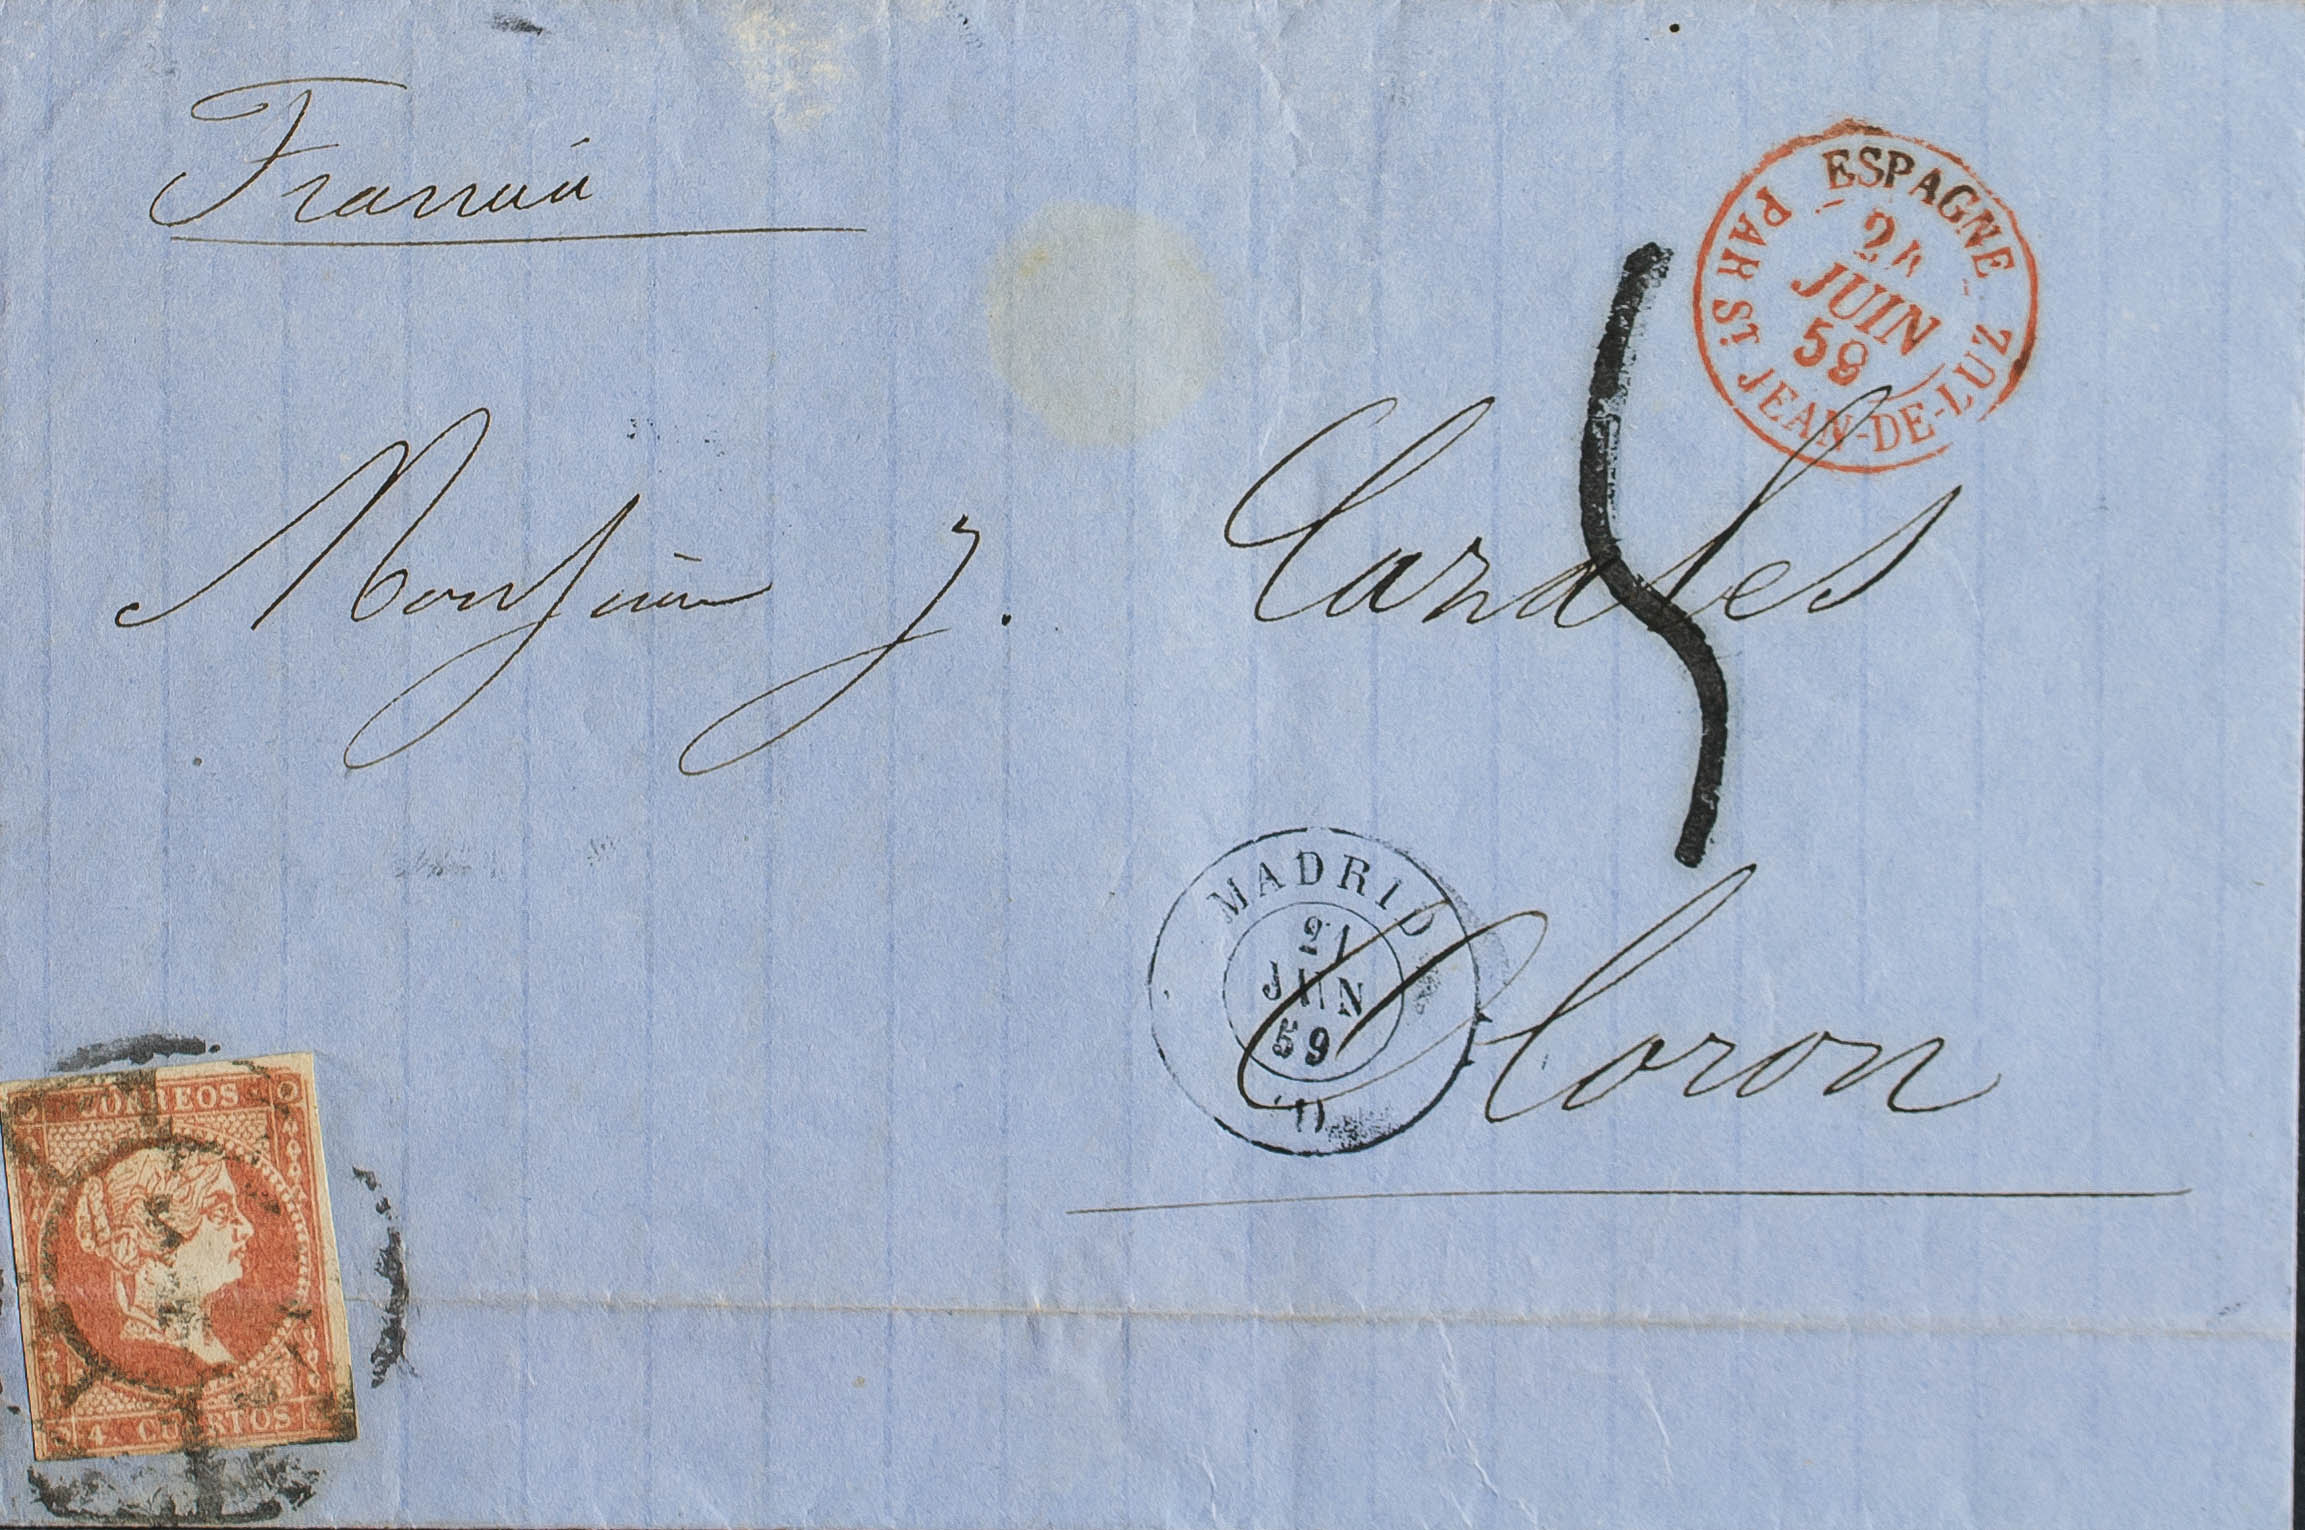 Francia
ESPAGNE
24
JUIN
59
PAR ST JEAN-DE-LUZ
5
Monsieur J. Candes
MADRID
21
JUN
59
Oloron
CORREOS
4 CUARTOS